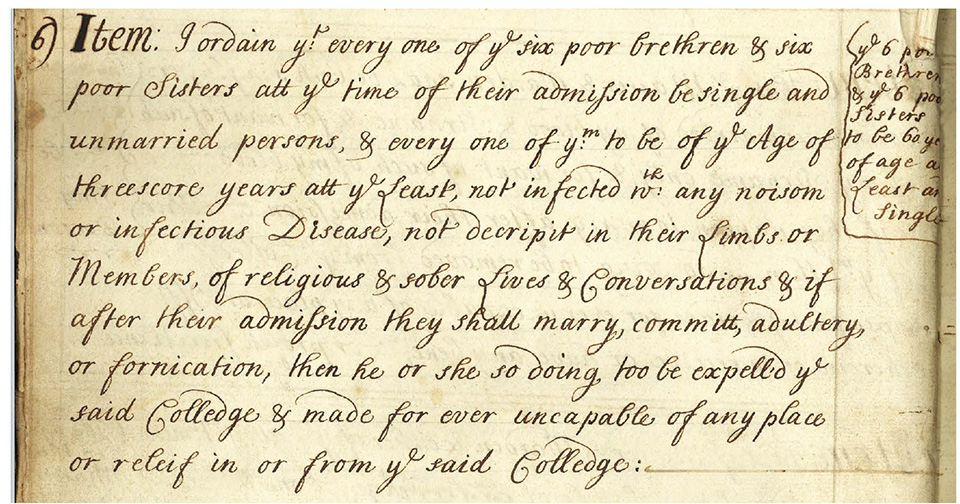 6) Item: I ordain yt every one of ye six poor brethren & six
poor Sisters att ye time of their admission be single and
unmarried persons, & every one of ym to be of ye Age of
threescore years att ye Least, not infected wth any noisom
or infectious Disease, not decripit in their Limbs or
Members, of religious & sober Lives & Conversations & if
after their admission they shall marry, committ, adultery,
or fornication, then he or she so doing, too be expelld ye
said Colledge & made for ever uncapable of any place
or releif in or from ye said Colledge:
ye 6
Brethren
& ye 6
Sisters
to be 60
of age
Least
Single